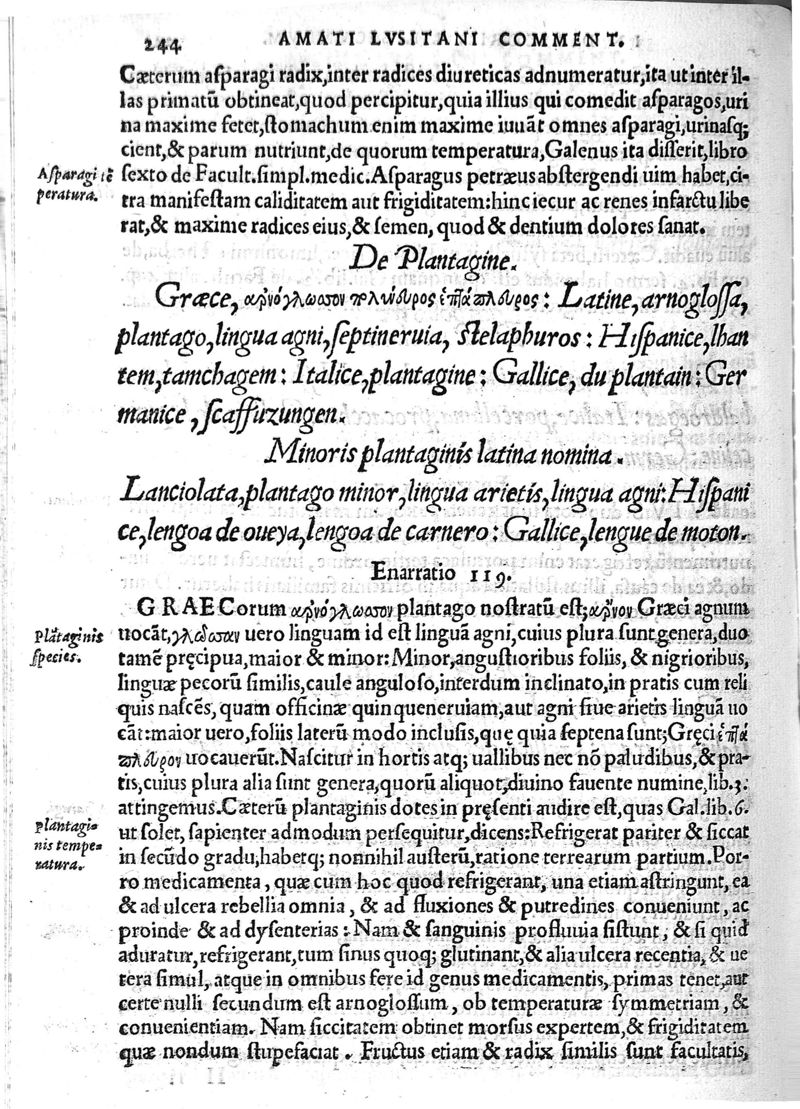 244 AMATI LVSITANI COMMENT.
Cæterum asparagi radix, inter radices diureticas adnumeratur, ita ut inter il-
las primatū obtineat, quod percipitur, quia illius qui comedit asparagos, uri
na maxime fetet, stomachum enim maxime iuuāt omnes asparagi, urinasq;
cient, & parum nutriunt, de quorum temperatura, Galenus ita disserit, libro
Asparagi tē
peratura.
sexto de Facult. simpl. medic. Asparagus petræus abstergendi uim habet, ci-
tra manifestam caliditatem aut frigiditatem: hinc iecur ac renes infarctu libe
rat, & maxime radices eius, & semen, quod & dentium dolores sanat.
De Plantagine.
Græce, ἀρνόγλωσσον πολύνευρος ἑπτάπλευρος: Latine, arnoglossa,
plantago, lingua agni, septineruia, stelaphuros: Hispanice, lhan
tem, tamchagem: Italice, plantagine: Gallice, du plantain: Ger
manice, scaffuzungen.
Minoris plantaginis latina nomina.
Lanciolata, plantago minor, lingua arietis, lingua agni: Hispani
ce, lengoa de oueya, lengoa de carnero: Gallice, lengue de moton.
Enarratio 119.
GRAECorum ἀρνόγλωσσον plantago nostratū est; ἄρνον Græci agnum
Plātaginis
species.
uocāt, γλῶσσαν uero linguam id est linguā agni, cuius plura sunt genera, duo
tamē pręcipua, maior & minor: Minor, angustioribus foliis, & nigrioribus,
linguæ pecorū similis, caule anguloso, interdum inclinato, in pratis cum reli
quis nascēs, quam officinæ quinqueneruiam, aut agni siue arietis linguā uo
cāt: maior uero, foliis laterū modo inclusis, quę quia septena sunt; Gręci ἑπτά
πλευρον uocauerūt. Nascitur in hortis atq; uallibus nec nō paludibus, & pra-
tis, cuius plura alia sunt genera, quorū aliquot, diuino fauente numine, lib. 3.
attingemus. Cæterū plantaginis dotes in pręsenti audire est, quas Gal. lib. 6.
Plantagi-
nis tempe-
ratura.
ut solet, sapienter admodum persequitur, dicens: Refrigerat pariter & siccat
in secūdo gradu, habetq; nonnihil austerū, ratione terrearum partium. Por-
ro medicamenta, quæ cum hoc quod refrigerant, una etiam astringunt, ea
& ad ulcera rebellia omnia, & ad fluxiones & putredines conueniunt, ac
proinde & ad dysenterias: Nam & sanguinis profluuia sistunt, & si quid
aduratur, refrigerant, tum sinus quoq; glutinant, & alia ulcera recentia, & ue
tera simul, atque in omnibus fere id genus medicamentis, primas tenet, aut
certe nulli secundum est arnoglossum, ob temperaturæ symmetriam, &
conuenientiam. Nam siccitatem obtinet morsus expertem, & frigiditatem
quæ nondum stupefaciat. Fructus etiam & radix similis sunt facultatis,